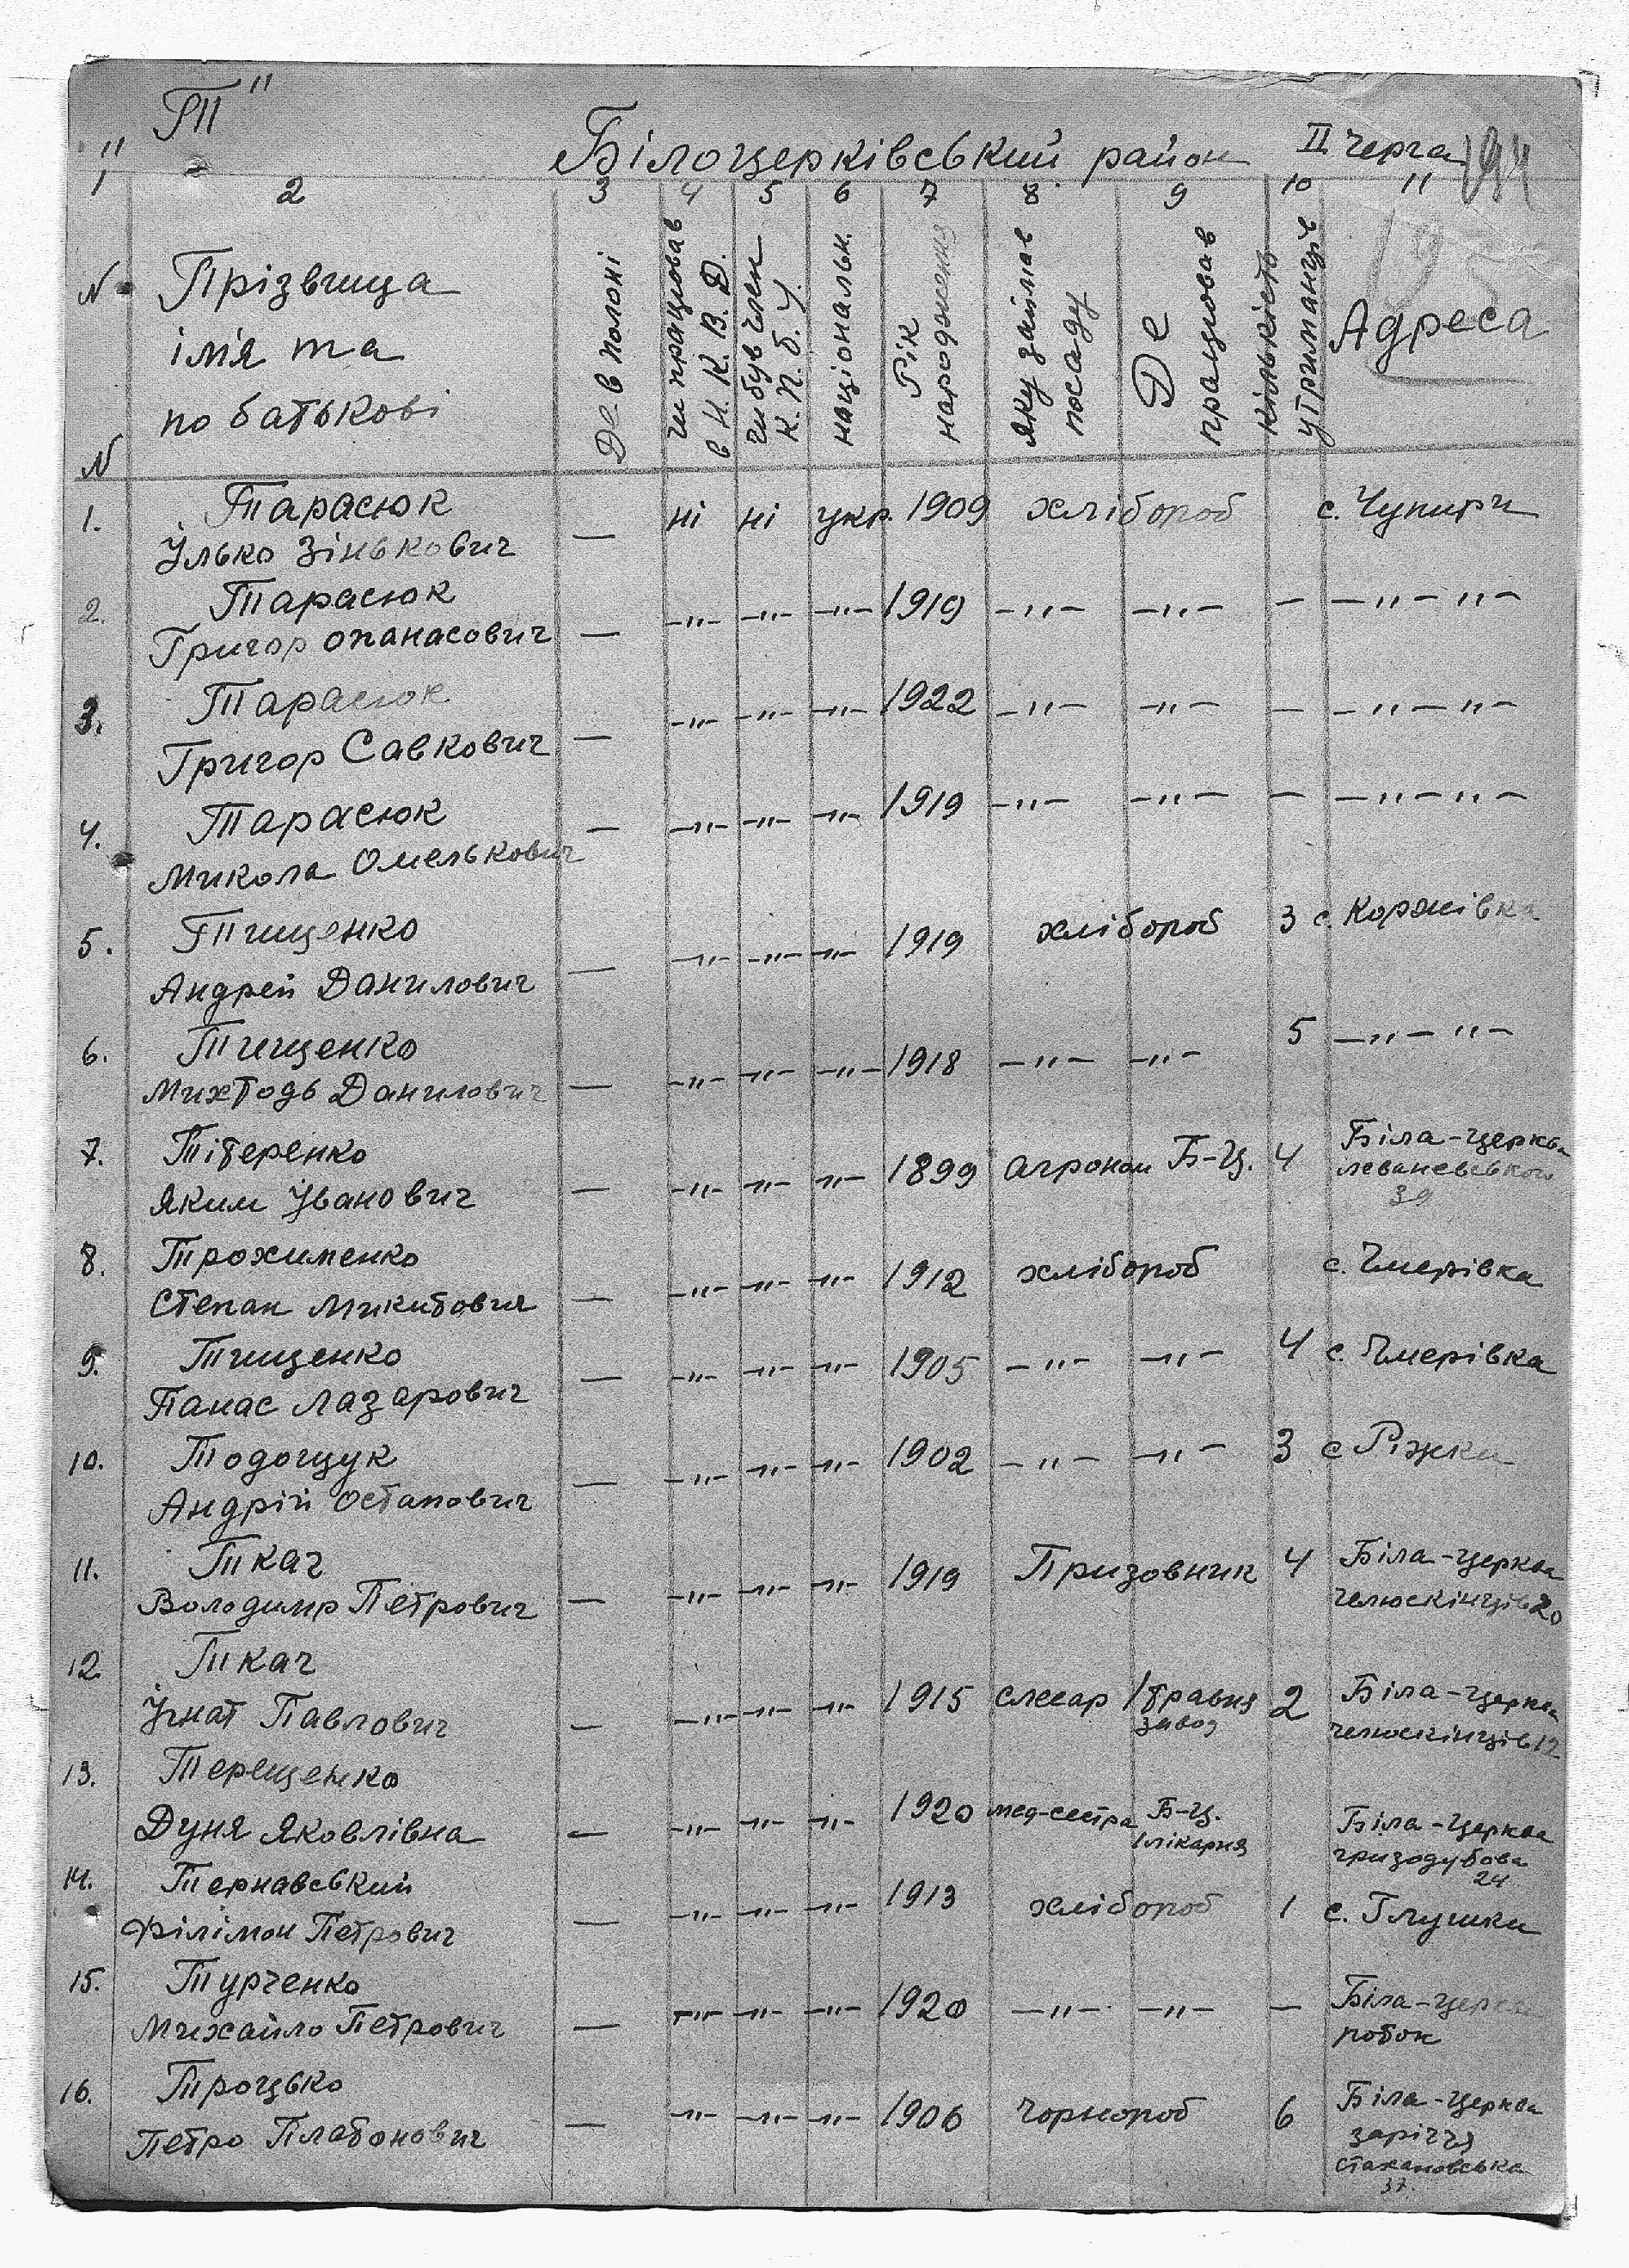 "Т"
Білоцерківський район ІІ черга 194
1 2 3 4 5 6 7 8 9 10 11
№ № Прізвища імя та по батькові Де в полоні чи працював в Н.К.В.Д. чи був член К.П.б.У. національн. Рік народження яку займав посаду Де працював кількість утриманців Адреса
1. Тарасюк
Ілько Зінькович — ні ні укр. 1909 хлібороб с. Чупири
2. Тарасюк
Григор опанасович — —"— —"— —"— 1919 —"— —"— — —"— "—
3. Тарасюк
Григор Савкович — —"— —"— —"— 1922 —"— —"— — —"— "—
4. Тарасюк
Микола Омелькович — —"— —"— —"— 1919 —"— —"— — —"— "—
5. Тищенко
Андрей Данилович — —"— —"— —"— 1919 хлібороб 3 с. Коржівка
6. Тищенко
Михтодь Данилович — —"— —"— —"— 1918 —"— —"— 5 —"— "—
7. Тітеренко
Яким Іванович — —"— —"— —"— 1899 агроном Б-Ц. 4 Біла-церква
леваневського
39
8. Трохименко
Степан Микитович — —"— —"— —"— 1912 хлібороб с. Чмерівка
9. Тищенко
Панас Лазарович — —"— —"— —"— 1905 —"— —"— 4 с. Чмерівка
10. Тодощук
Андрій Остапович — —"— —"— —"— 1902 —"— —"— 3 с Ріжки
11. Ткач
Володимир Петрович — —"— —"— —"— 1919 Призовник 4 Біла-церква
челюскінців 20
12. Ткач
Ігнат Павлович — —"— —"— —"— 1915 слюсар 1 травня
завод 2 Біла-церква
челюскінців 12
13. Терещенко
Дуня Яковлівна — —"— —"— —"— 1920 мед-сестра Б-Ц.
1 лікарня Біла-церква
гризодубова
24
14. Тернавський
Філімон Петрович — —"— —"— —"— 1913 хлібороб 1 с. Глушки
15. Турченко
Михайло Петрович — —"— —"— —"— 1920 —"— —"— — Біла-церква
роток
16. Троцько
Петро Платонович — —"— —"— —"— 1906 чорнороб 6 Біла-церква
заріччя
стахановська
37.